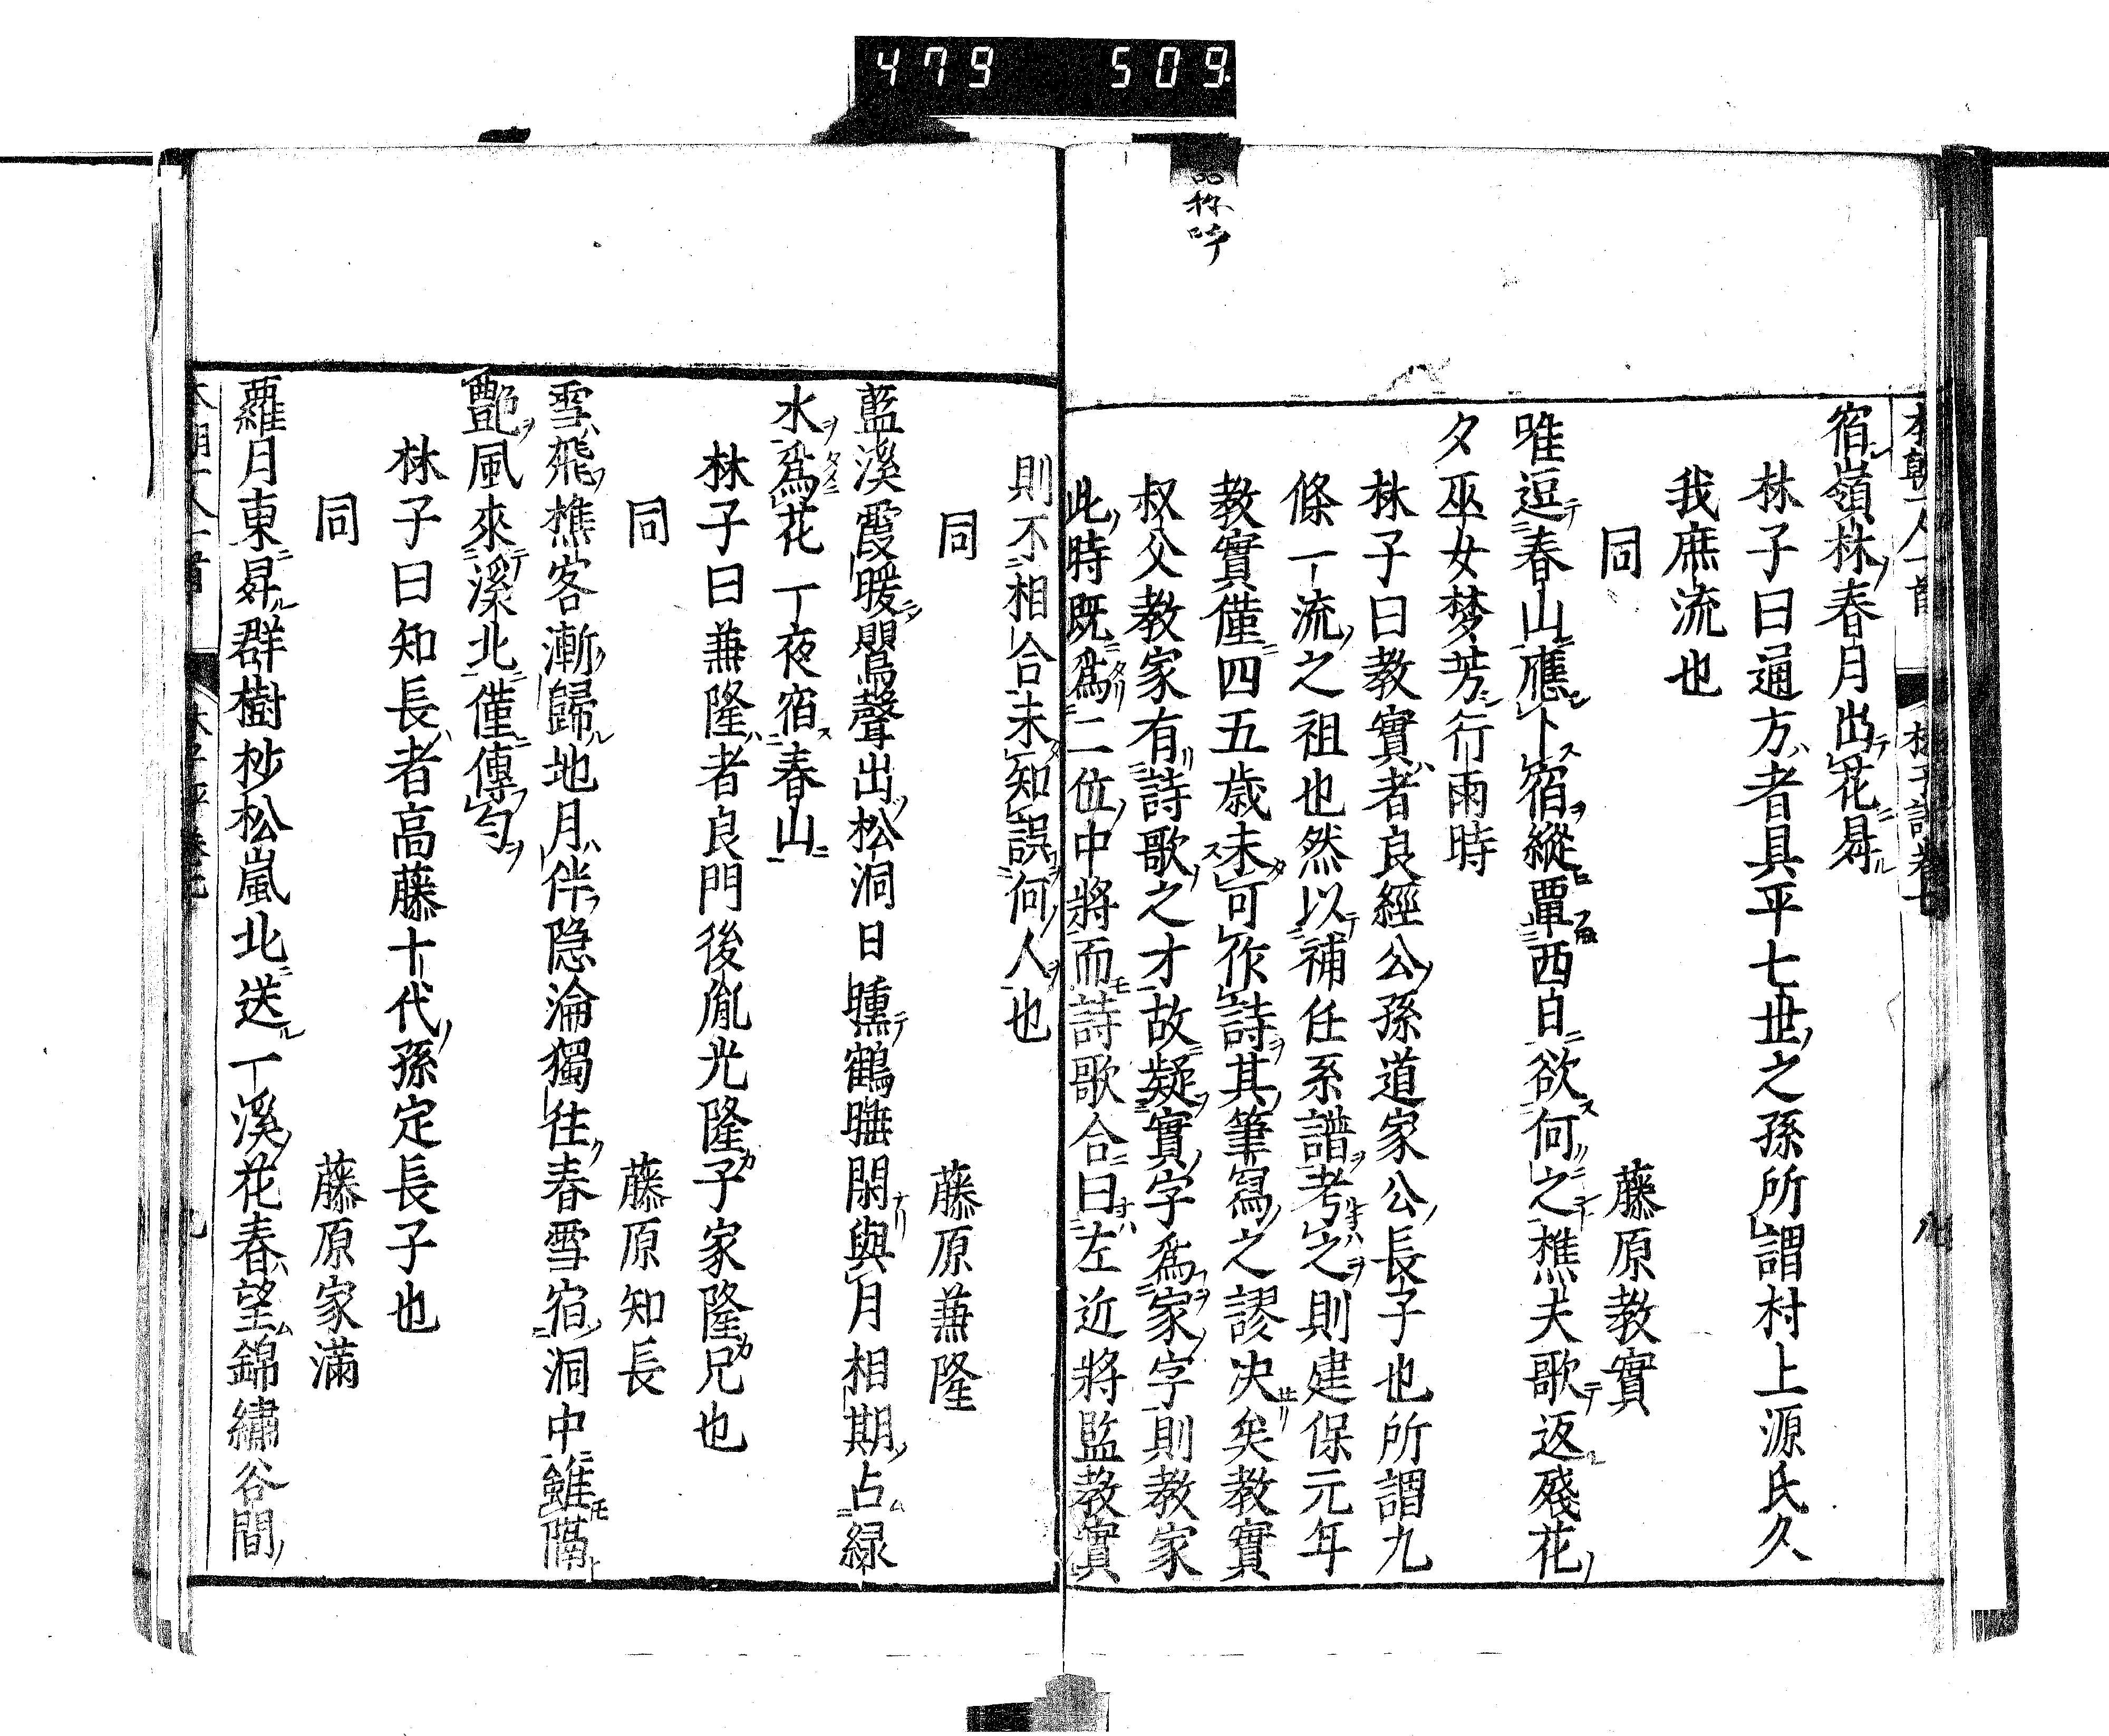 479 509
宿嶺林春月出花昇
林子曰通方者具平七世之孫所謂村上源氏久
我庶流也
同 藤原教實
唯逗春山應卜宿縱覃西日欲何之樵夫歌返殘花
夕巫女梦芳行雨時
林子曰教實者良經公孫道家公長子也所謂九
條一流之祖也然以補任系譜考之則建保元年
教實僅四五歲未可作詩其筆寫之謬決矣教實
叔父教家有詩歌之才故疑實字爲家字則教家
此時既爲二位中將而詩歌合曰左近將監教實
則不相合未知誤何人也
同 藤原兼隆
藍溪霞暖鸎聲出松洞日曛鶴睡閑與月相期占緑
水爲花一夜宿春山
林子曰兼隆者良門後胤光隆子家隆兄也
同 藤原知長
雪飛樵客漸歸地月伴隐淪獨往春雪宿洞中雖隔
艷風來溪北僅傳匂
林子曰知長者高藤十代孫定長子也
同 藤原家滿
蘿月東昇群樹杪松嵐北送一溪花春望錦繡谷間